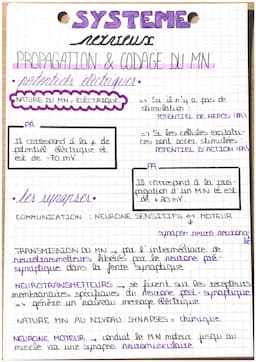 SYSTEME
nerveux
PROPAGATION & CODAGE DU MN
• potentiels électriques •
NATURE DU MN : ELECTRIQUE
=> Si il n'y a pas de
stimulation :
POTENTIEL DE REPOS (PR)
PR
Il correspond à la ≠ de
potentiel électrique et
est de -70 mV
=> Si les cellules excitatri-
ces sont assez stimulées :
POTENTIEL D'ACTION (PA)
PA
Il correspond à la pro-
pagation d'un MN et est
de +30 mV.
• les synapses •
COMMUNICATION : NEURONE SENSITIFS <-> MOTEUR
synapse neuro neurona
TRANSMISSION DU MN → par l'intermédiaire de
neurotransmetteurs libérés par le neurone pré-
synaptique dans la fente synaptique
NEUROTRANSMETTEURS → se fixent sur les récepteurs
membranaires spécifiques du neurone post-synaptique
→ génère un nouveau message électrique
NATURE MN AU NIVEAU SYNAPSES = chimique
NEURONE MOTEUR → conduit le MN moteur jusqu'au
muscle via une synapse neuromusculaire